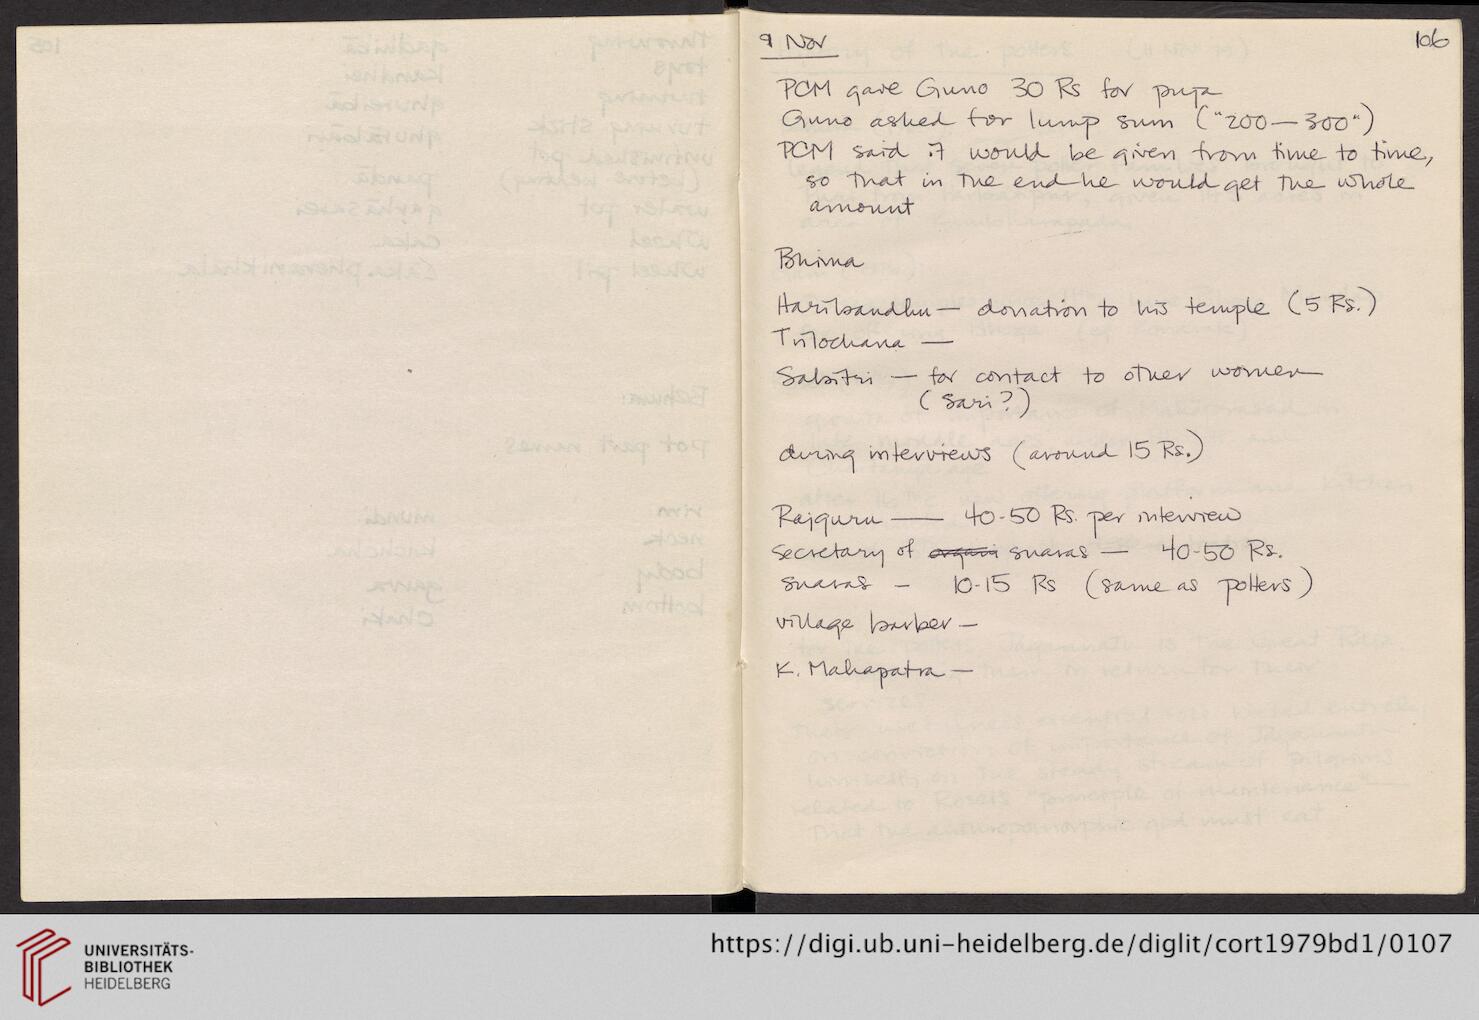 9 Nov
106
PCM gave Guno 30 Rs for puja
Guno asked for lump sum ("200—300")
PCM said it would be given from time to time,
so that in the end he would get the whole
amount
Bhima
Haribandhu — donation to his temple (5 Rs.)
Trilochana —
Sabitri — for contact to other women
(Sari?)
during interviews (around 15 Rs.)
Rajguru — 40-50 Rs. per interview
secretary of suaras — 40-50 Rs.
suaras - 10-15 Rs (same as potters)
village barber —
K. Mahapatra —
UNIVERSITÄTS-
BIBLIOTHEK
HEIDELBERG
https://digi.ub.uni-heidelberg.de/diglit/cort1979bd1/0107